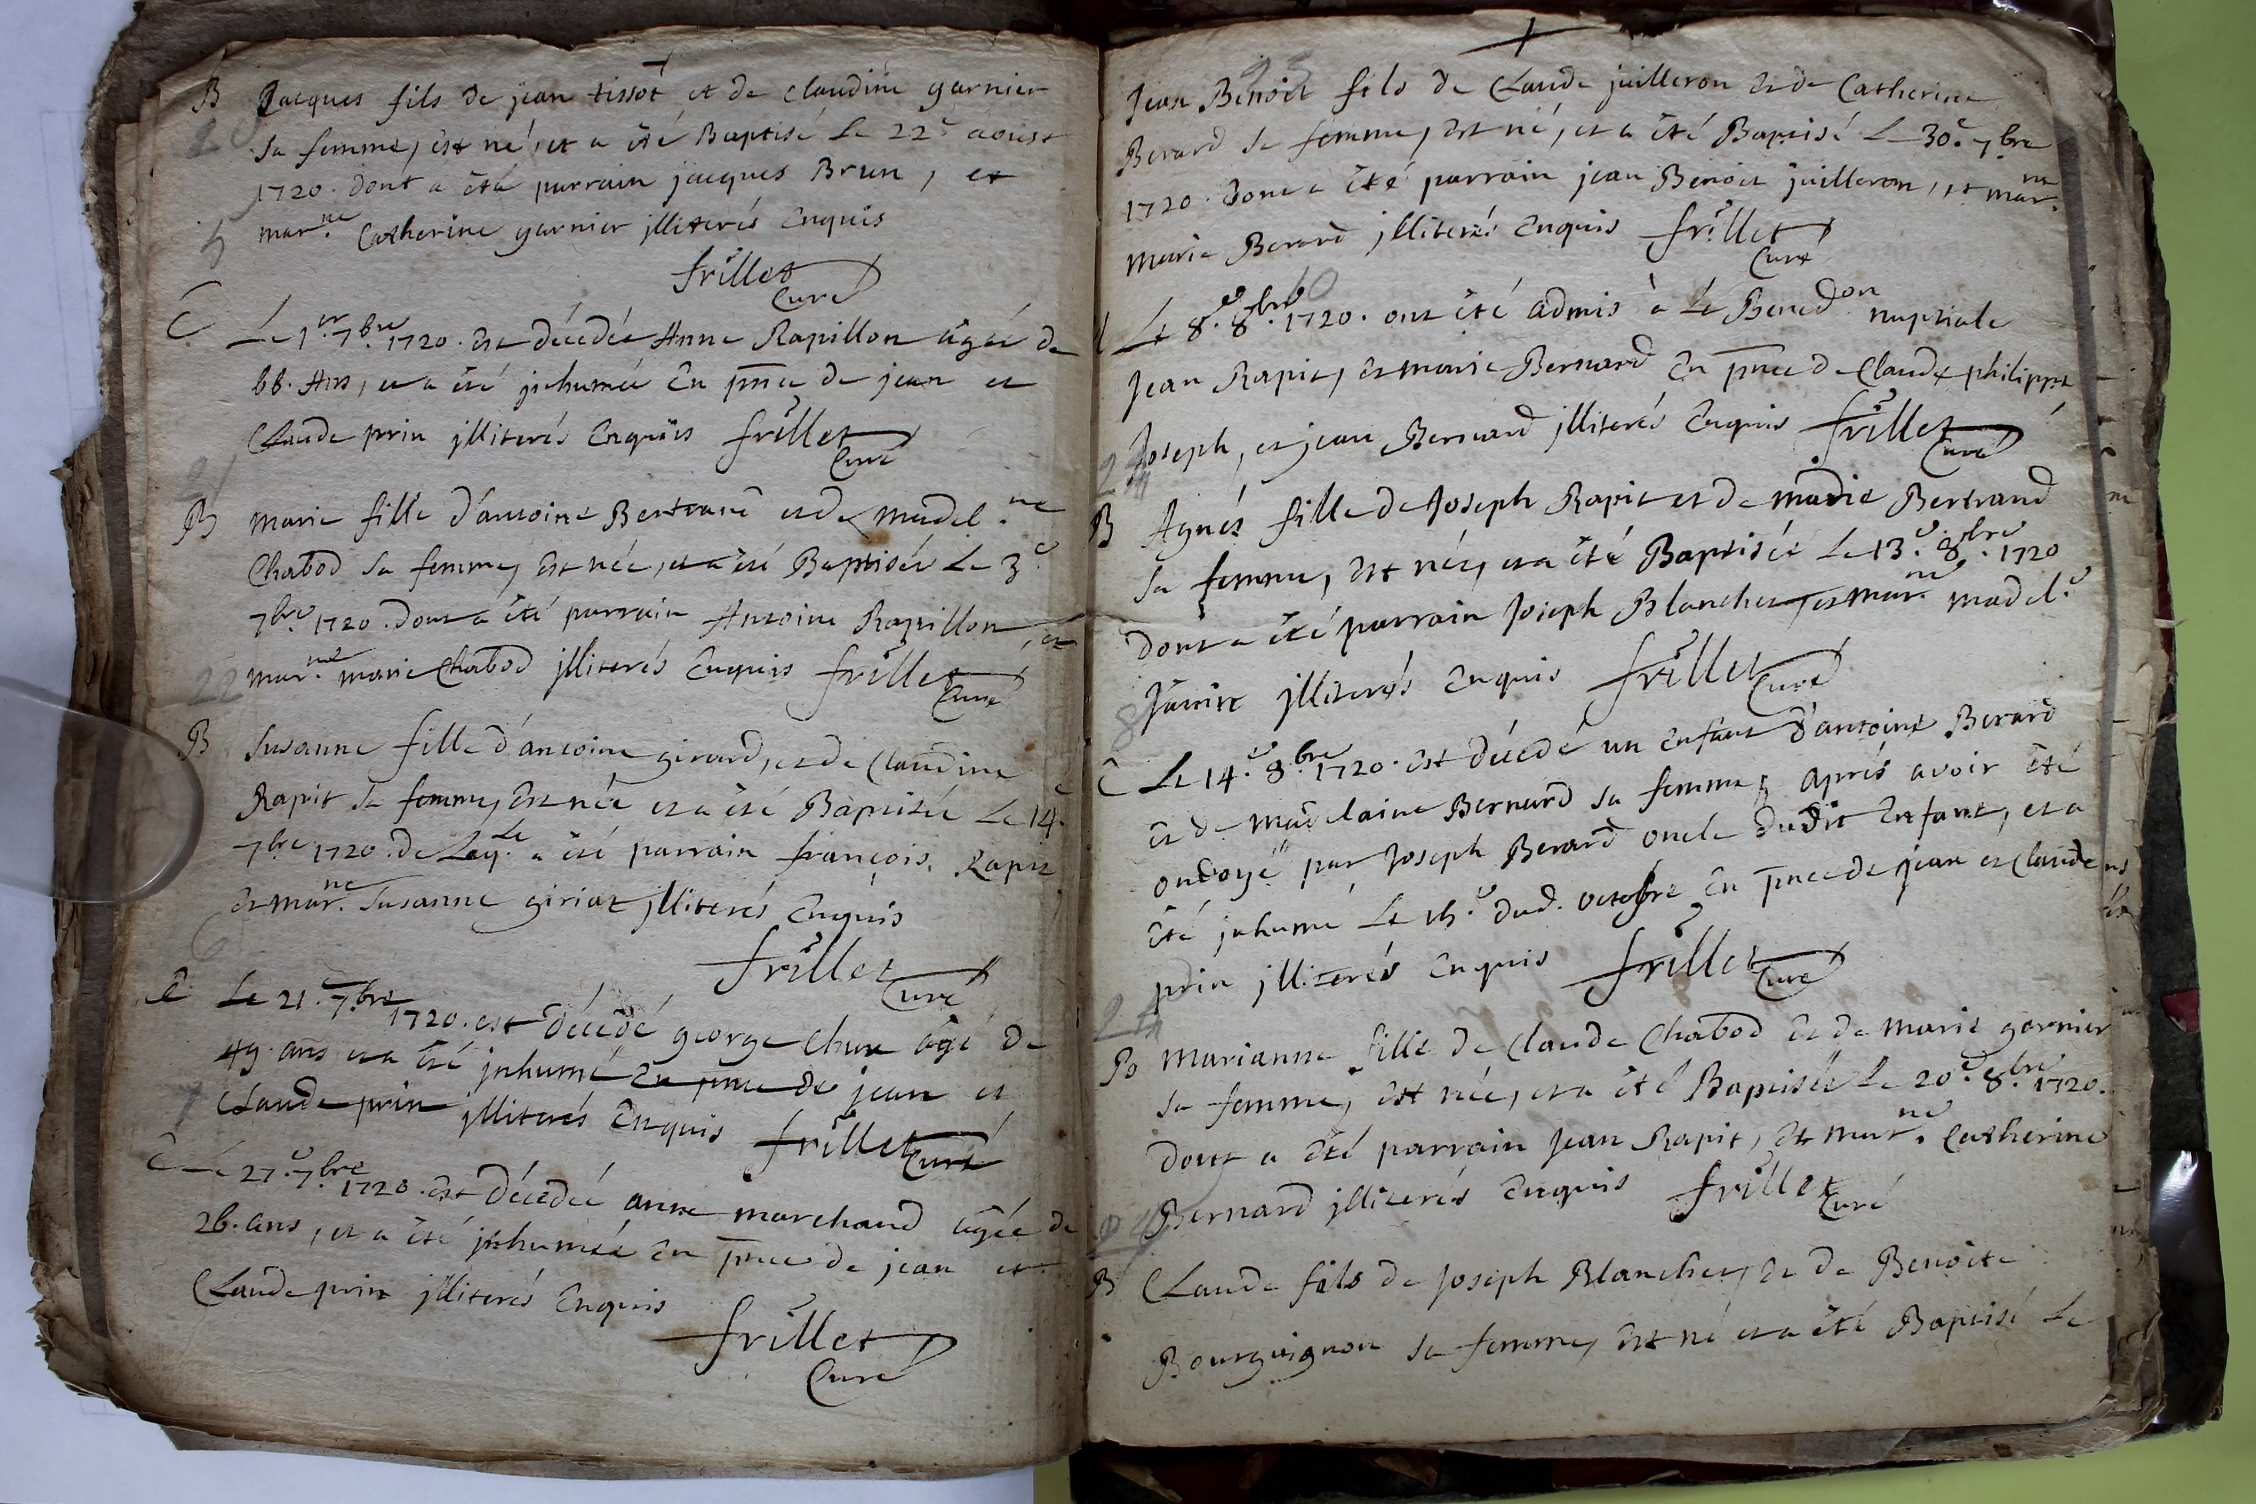 B Jacques fils de jean tissot et de claudine garnier
20 sa femme, est né, et a été Baptisé Le 22e aoust
1720. dont a été parrain jacques Brun, et
5 mar.ne Catherine garnier jlliterés Enquis
frillet
Curé
C Le 1er 7bre 1720. est décedée Anne Rapillon agée de
66. Ans, et a été jnhumée En pnce de jean et
Claude prin jlliterés Enquis frillet
Curé
21
B marie fille d'antoine Bertrand et de madel.ne
Chabod sa femme, est née, et a été Baptisée Le 3e
7bre 1720. dont a été parrain Antoine Rapillon, et
22 mar.ne marie Chabod jlliterés Enquis frillet
Curé
B Susanne fille d'antoine girard, et de Claudine
Rapit sa femme, est née et a été Baptisée Le 14e
7bre 1720. de Laq.le a été parrain françois Rapit
et mar.ne Susanne giriat jlliterés Enquis
6
frillet
Curé
C Le 21.e 7bre 1720. est décedé george Chun agé de
49. ans et a été jnhumé En pnce de jean et
7 Claude prin jlliterés Enquis frillet
Curé
C Le 27.e 7bre 1720. est décedée anne marchand agée de
26. ans, et a été jnhumée En pnce de jean et
Claude prin jlliterés Enquis
frillet
Curé
23
Jean Benoit fils de Claude juilleron et de Catherine
Berard sa femme, est né, et a été Baptisé Le 30.e 7bre
1720. dont a été parrain jean Benoit juilleron, et mar.ne
Marie Berard jlliterés Enquis frillet
Curé
10
Le 8.e 8bre 1720. ont été admis à La Bened.on nuptiale
Jean Rapit, et marie Bernard En pnce de Claude philippe
Joseph, et jean Bernard jlliterés Enquis frillet
Curé
24
B Agnés fille de Joseph Rapit et de marie Bertrand
sa femme, est née, et a été Baptisée Le 13.e 8bre 1720
dont a été parrain Joseph Blanchet, et mar.ne madel.e
jlliterés Enquis frillet
Curé
8
C Le 14.e 8bre 1720. est décedé un Enfant d'antoine Berard
et de madelaine Bernard sa femme, aprés avoir été
ondoyé par Joseph Berard oncle dudit Enfant, et a
été jnhumé Le 15.e dud. octobre En pnce de jean et Claude
prin jlliterés Enquis frillet
Curé
25
B Marianne fille de Claude Chabod et de marie garnier
sa femme, est née, et a été Baptisée Le 20.e 8bre 1720.
dont a été parrain Jean Rapit, et mar.ne Catherine
Bernard jlliterés Enquis frillet
Curé
B Claude fils de Joseph Blanchet, et de Benoite
Bourguignon sa femme, est né et a été Baptisé Le